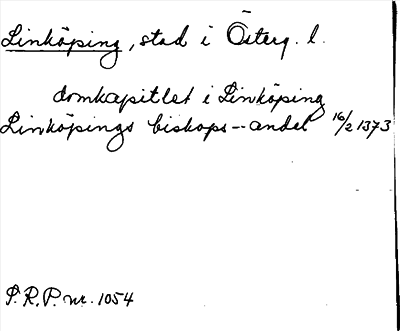 Linköping, stad i Österg. l.
domkapitlet i Linköping
Linköpings biskops--andel 16/2 1373
S.R.P. nr. 1054